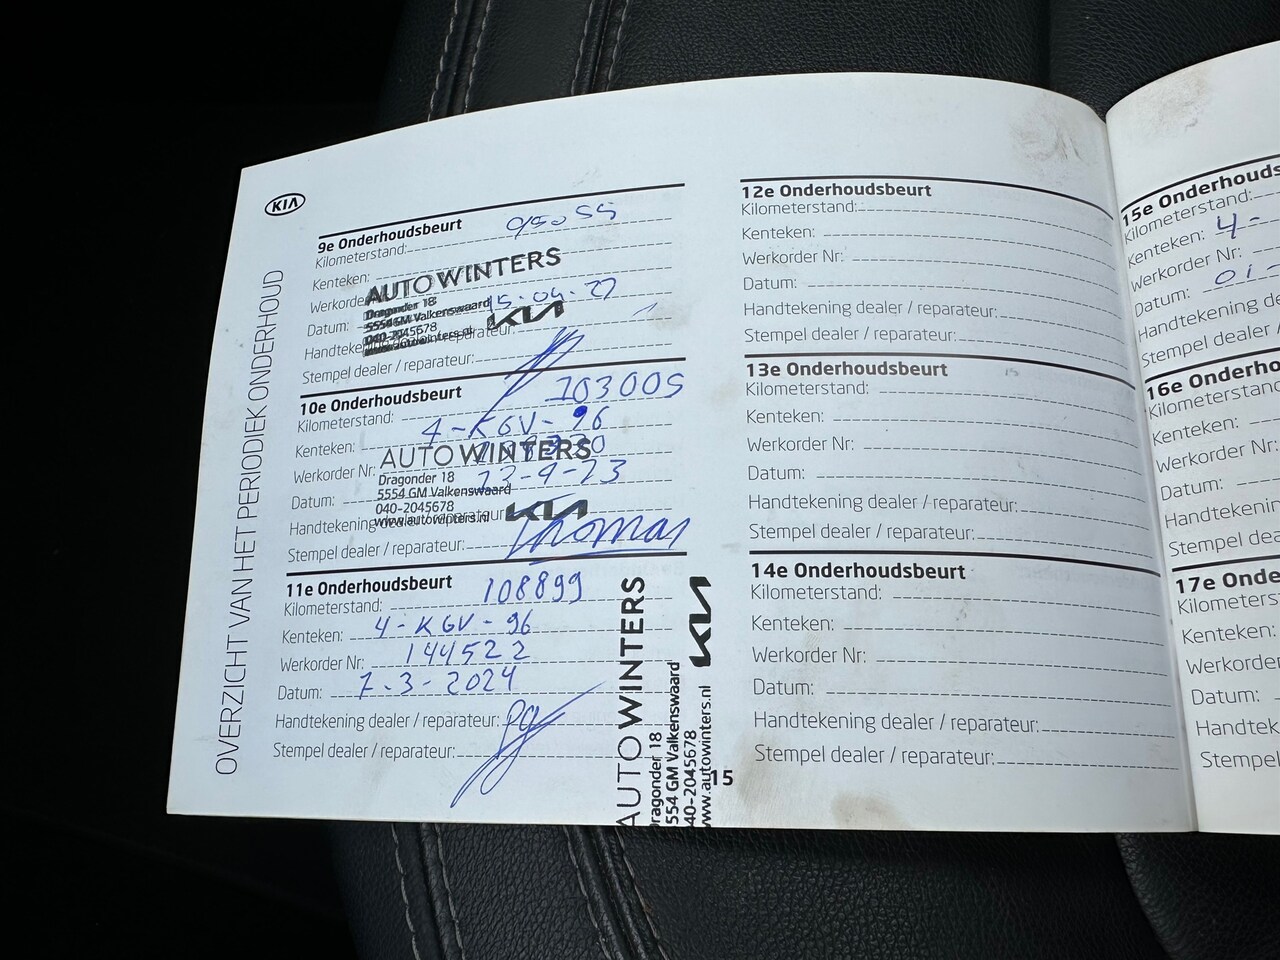 KIA
OVERZICHT VAN HET PERIODIEK ONDERHOUD
9e Onderhoudsbeurt
Kilometerstand: 95055
Kenteken:
AUTO WINTERS
Werkorder
Dragonder 18
Datum: 15-04-
5554 GM Valkenswaard
040-2045678
KIA
Stempel dealer / reparateur:
10e Onderhoudsbeurt
Kilometerstand: 103005
Kenteken: 4-KGV-96
Werkorder Nr:
AUTO WINTERS
Dragonder 18
Datum: -23
5554 GM Valkenswaard
040-2045678
Handtekening dealer / reparateur:
www.autowinters.nl
KIA
Thomas
Stempel dealer / reparateur:
11e Onderhoudsbeurt
Kilometerstand: 108899
Kenteken: 4-KGV-96
Werkorder Nr: 144522
Datum: 7-3-2024
Handtekening dealer / reparateur:
Stempel dealer / reparateur:
AUTO WINTERS
Dragonder 18
5554 GM Valkenswaard
040-2045678
www.autowinters.nl
KIA
15
12e Onderhoudsbeurt
Kilometerstand:
Kenteken:
Werkorder Nr:
Datum:
Handtekening dealer / reparateur:
Stempel dealer / reparateur:
13e Onderhoudsbeurt
Kilometerstand:
Kenteken:
Werkorder Nr:
Datum:
Handtekening dealer / reparateur:
Stempel dealer / reparateur:
14e Onderhoudsbeurt
Kilometerstand:
Kenteken:
Werkorder Nr:
Datum:
Handtekening dealer / reparateur:
Stempel dealer / reparateur:
15e Onderhouds
Kilometerstand:
Kenteken: 4-
Werkorder Nr:
Datum: 01-
Handtekening de
Stempel dealer /
16e Onderho
Kilometerstand
Kenteken:
Werkorder Nr:
Datum:
Handtekenin
Stempel dea
17e Onde
Kilometers
Kenteken:
Werkorder
Datum:
Handtek
Stempel